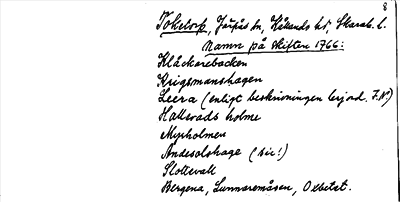 8
Tokatorp, Järpås sn, Kållands hd, Skarab. l.
Namn på skiften 1766:
Kläckarebacken
Krigsmanshagen
Leera (enligt beskrivningen lerjord. F.N.)
Hallvads holme
Myrholmen
Andesolshage (sic!)
Slottevall
Bergena, Sunnaremåsen, Oxbetet.